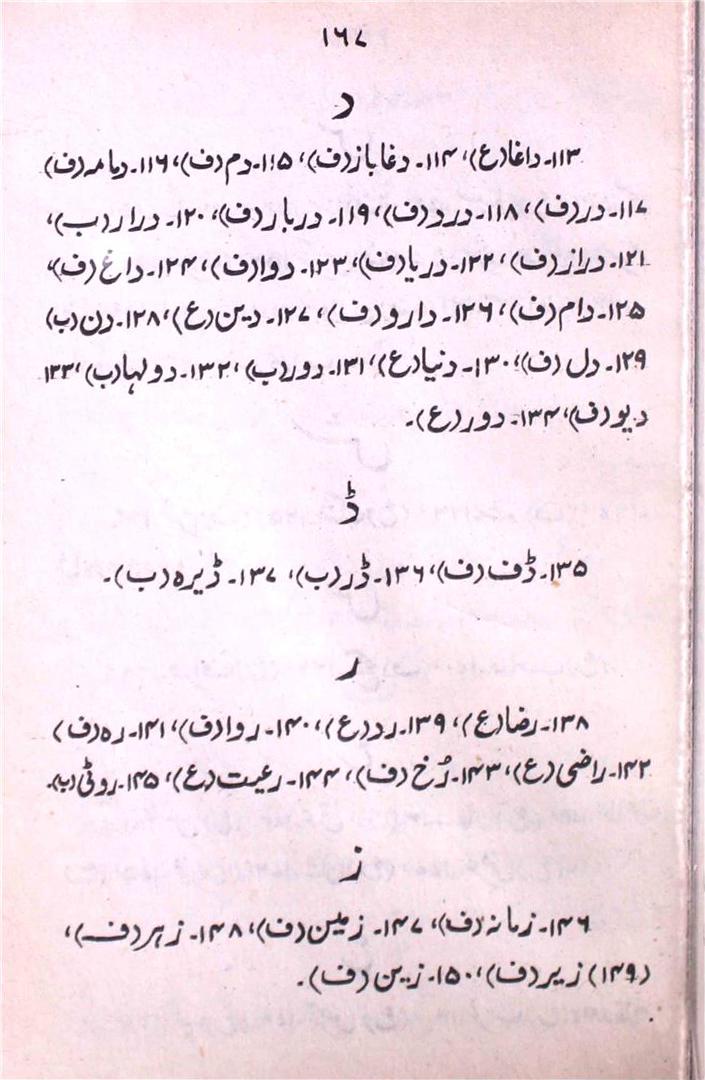 ۱۶۷
د
۱۱۳۔ داغا (ع)، ۱۱۴۔ دغا باز (ف)، ۱۱۵۔ دم (ف)، ۱۱۶۔ دمامہ (ف)
۱۱۷۔ در (ف)، ۱۱۸۔ درد (ف)، ۱۱۹۔ دربار (ف)، ۱۲۰۔ درار (ب)،
۱۲۱۔ دراز (ف)، ۱۲۲۔ دریا (ف)، ۱۲۳۔ دوا (ف)، ۱۲۴۔ داغ (ف)،
۱۲۵۔ دام (ف)، ۱۲۶۔ دارو (ف)، ۱۲۷۔ دین (ع)، ۱۲۸۔ دن (ب)
۱۲۹۔ دل (ف)، ۱۳۰۔ دنیا (ع)، ۱۳۱۔ دور (ب)، ۱۳۲۔ دولہا (ب)، ۱۳۳۔
دیو (ف)، ۱۳۴۔ دور (ع)۔
ڈ
۱۳۵۔ ڈف (ف)، ۱۳۶۔ ڈر (ب)، ۱۳۷۔ ڈیرہ (ب)۔
ر
۱۳۸۔ رضا (ع)، ۱۳۹۔ رد (ع)، ۱۴۰۔ روا (ف)، ۱۴۱۔ رہ (ف)
۱۴۲۔ راضی (ع)، ۱۴۳۔ رُخ (ف)، ۱۴۴۔ رعیت (ع)، ۱۴۵۔ روٹی (ب)۔
ز
۱۴۶۔ زمانہ (ف)، ۱۴۷۔ زمین (ف)، ۱۴۸۔ زہر (ف)،
(۱۴۹) زیر (ف)، ۱۵۰۔ زین (ف)۔